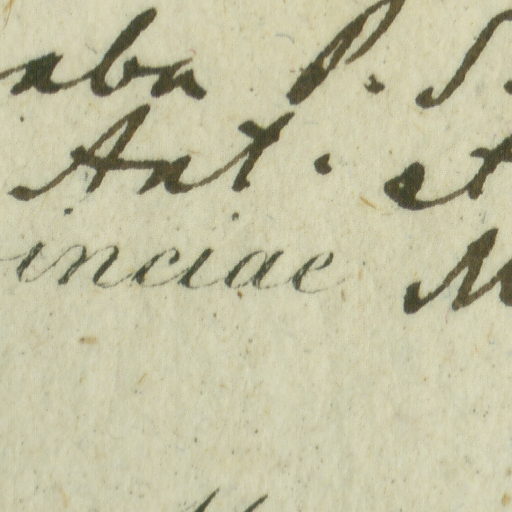 aba P. S.
Ant. et
inciae M